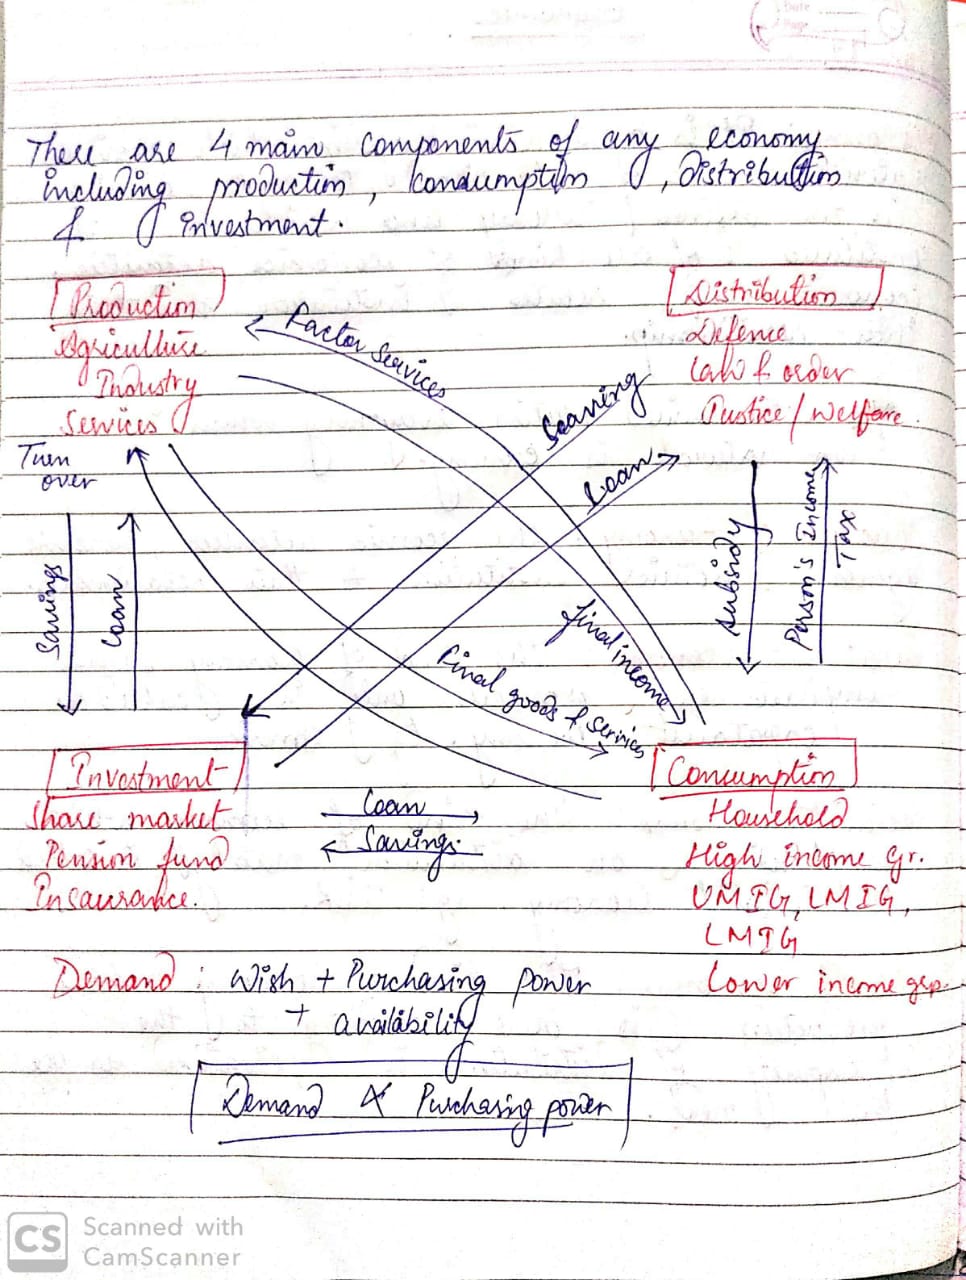 There are 4 main components of any economy
including production, condumption, distribution
& investment.
Production
Agriculture
Industry
Services
Distribution
Defence
Law & order
Justice / Welfare
Factor Services
Seaving
Loan
Turn
over
Savings
Loan
Subsidy
Person's Income
Tax
final income
Final goods & services
Investment
Share market
Pension fund
Insaurance.
Loan
Savings
Concumption
Household
High income gr.
UMIG, LMIG,
LMIG
Lower income grp.
Demand : Wish + Purchasing power
+ availability
Demand ∝ Purchasing power
CS Scanned with
CamScanner